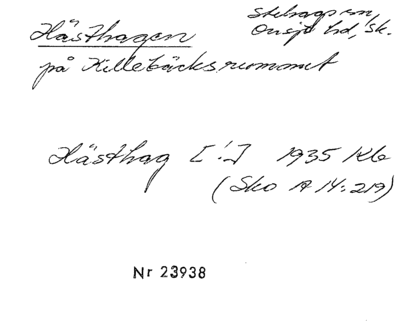 Hästhagen
Stehagsn,
Onsjö hd, Sk.
på Killebäcksrummet
Hästhag [!] 1935 Klb
(Sko A 14:219)
Nr 23938